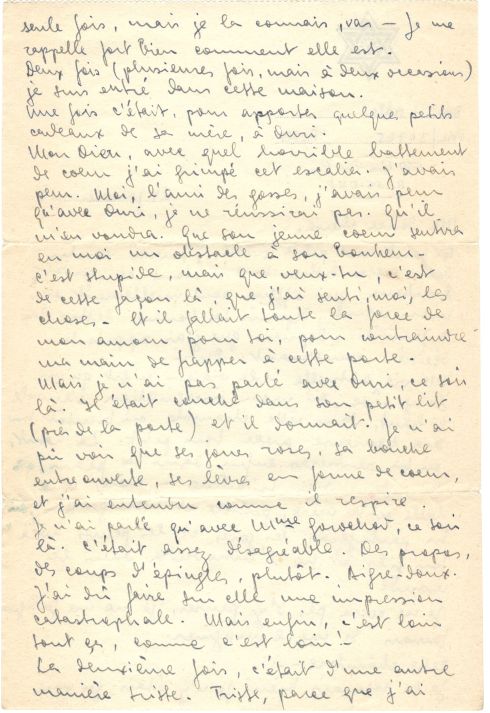 seule fois, mais je la connais, vas – Je me
rappelle fort bien comment elle est.
Deux fois (plusieures fois, mais à deux occasions)
je suis entré dans cette maison.
Une fois c'était, pour apporter quelque petits
cadeaux de sa mère, à Ouri.
Mon Dieu, avec quel horrible battement
de coeur j'ai grimpé cet escalier. J'avais
peur. Moi, l'ami des gosses, j'avais peur
qu'avec Ouri, je ne réussirai pas. Qu'il
m'en voudra. Que son jeune coeur sentira
en moi un obstacle à son bonheur –
c'est stupide, mais que veux-tu, c'est
de cette façon là, que j'ai senti, moi, les
choses – Et il fallait toute la force de
mon amour pour toi, pour contraindre
ma main de frapper à cette porte.
Mais je n'ai pas parlé avec Ouri, ce soir
là. Il était couché dans son petit lit
(près de la porte) et il dormait. Je n'ai
pu voir que ses joues roses, sa bouche
entreouverte, ses lèvres en forme de coeur,
et j'ai entendu comme il respire.
Je n'ai parlé qu'avec Mme, ce soir
là. C'était assez désagréable. Des propos,
des coups d'épingles, plutôt. Aigre-doux.
J'ai dû faire sur elle une impression
catastrophale. Mais enfin, c'est loin
tout ça, comme c'est loin! –
La deuxième fois, c'était d'une autre
manière triste. Triste, parce que j'ai